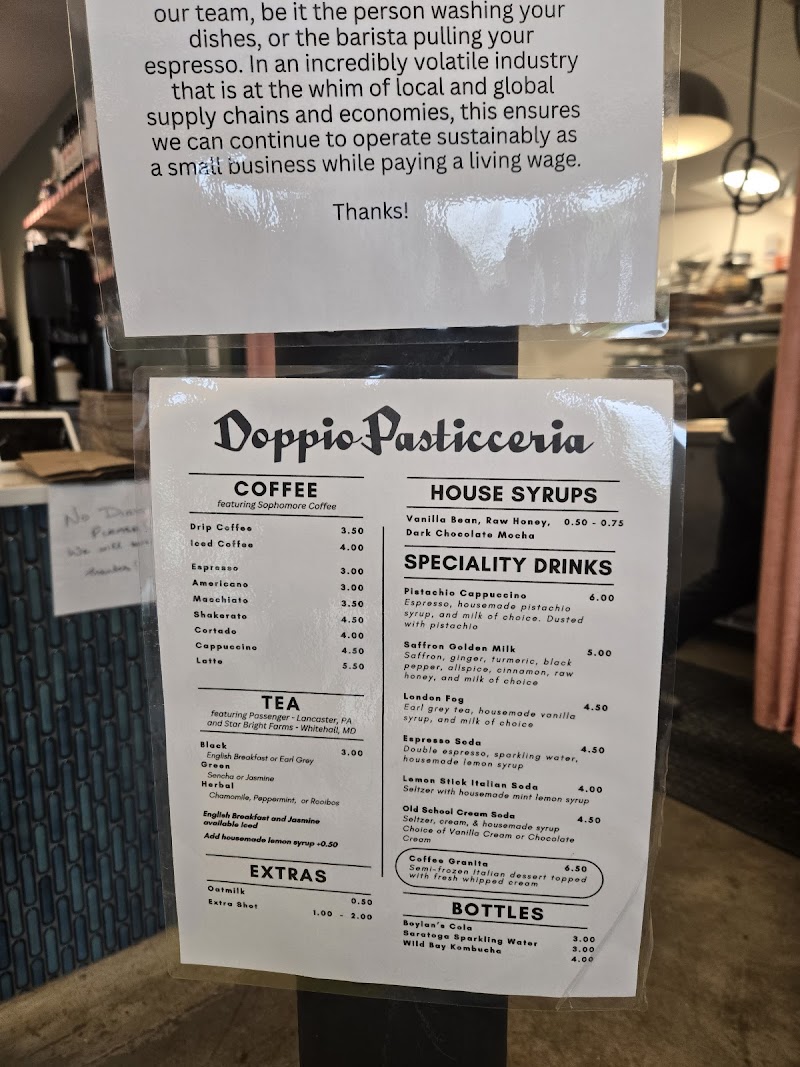 our team, be it the person washing your
dishes, or the barista pulling your
espresso. In an incredibly volatile industry
that is at the whim of local and global
supply chains and economies, this ensures
we can continue to operate sustainably as
a small business while paying a living wage.
Thanks!
Doppio Pasticceria
COFFEE
featuring Sophomore Coffee
Drip Coffee 3.50
Iced Coffee 4.00
Espresso 3.00
Americano 3.00
Macchiato 3.50
Shakerato 4.50
Cortado 4.00
Cappuccino 4.50
Latte 5.50
TEA
featuring Passenger - Lancaster, PA
and Star Bright Farms - Whitehall, MD
Black 3.00
English Breakfast or Earl Grey
Green
Sencha or Jasmine
Herbal
Chamomile, Peppermint, or Rooibos
English Breakfast and Jasmine
available iced
Add housemade lemon syrup +0.50
EXTRAS
Oatmilk 0.50
Extra Shot 1.00 - 2.00
HOUSE SYRUPS
Vanilla Bean, Raw Honey, 0.50 - 0.75
Dark Chocolate Mocha
SPECIALITY DRINKS
Pistachio Cappuccino 6.00
Espresso, housemade pistachio
syrup, and milk of choice. Dusted
with pistachio
Saffron Golden Milk 5.00
Saffron, ginger, turmeric, black
pepper, allspice, cinnamon, raw
honey, and milk of choice
London Fog 4.50
Earl grey tea, housemade vanilla
syrup, and milk of choice
Espresso Soda 4.50
Double espresso, sparkling water,
housemade lemon syrup
Lemon Stick Italian Soda 4.00
Seltzer with housemade mint lemon syrup
Old School Cream Soda 4.50
Seltzer, cream, & housemade syrup
Choice of Vanilla Cream or Chocolate
Cream
Coffee Granita 6.50
Semi-frozen Italian dessert topped
with fresh whipped cream
BOTTLES
Boylan's Cola 3.00
Saratoga Sparkling Water 3.00
Wild Bay Kombucha 4.00
No
Please!
We will